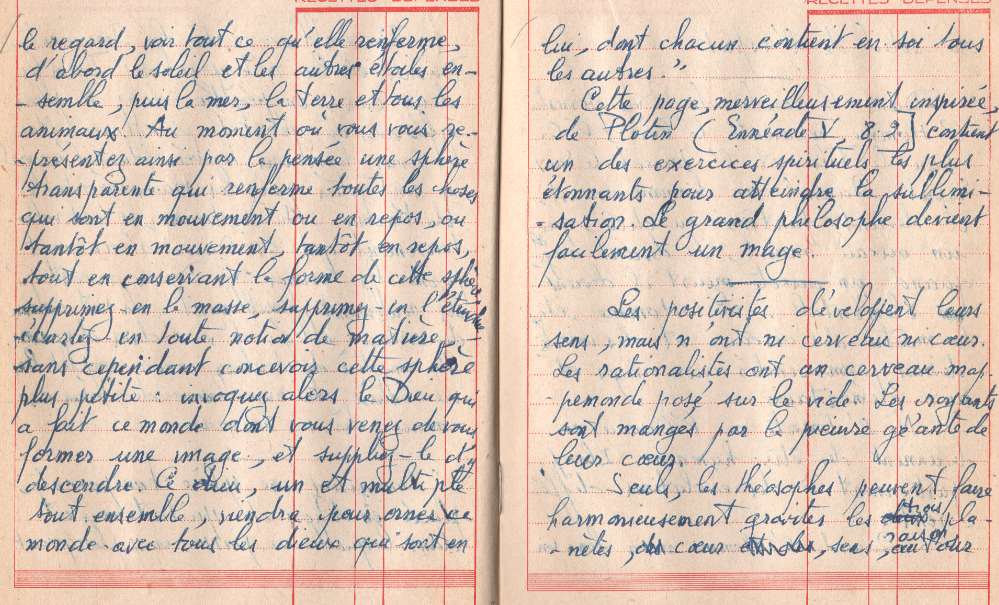 RECETTES DÉPENSES
le regard, voir tout ce qu'elle renferme,
d'abord le soleil et les autres étoiles en-
-semble, puis la mer, la terre et tous les
animaux. Au moment où vous vous re-
-présentez ainsi par la pensée une sphère
transparente qui renferme toutes les choses
qui sont en mouvement ou en repos, ou
tantôt en mouvement, tantôt en repos,
tout en conservant la forme de cette sphère
supprimez-en la masse, supprimez-en l'étendue,
écartez en toute notion de matière,
sans cependant concevoir cette sphère
plus petite : invoquez alors le Dieu qui
a fait ce monde dont vous venez de vous
former une image, et suppliez-le d'y
descendre. Ce dieu, un et multiple
tout ensemble, viendra pour orner ce
monde avec tous les dieux qui sont en
RECETTES DÉPENSES
lui, dont chacun contient en soi tous
les autres."
Cette page, merveilleusement inspirée,
de Plotin (Ennéade V 8.9) contient
un des exercices spirituels les plus
étonnants pour atteindre la sublimi-
-sation. Le grand philosophe devient
facilement un mage.
Les positivistes développent leurs
sens, mais n'ont ni cerveau ni cœur.
Les rationalistes ont un cerveau map-
-pemonde posé sur le vide. Les croyants
sont mangés par la pieuvre géante de
leur cœur.
Seuls, les théosophes peuvent faire
harmonieusement graviter les trois pla-
-nètes, cœur, sens, raison autour